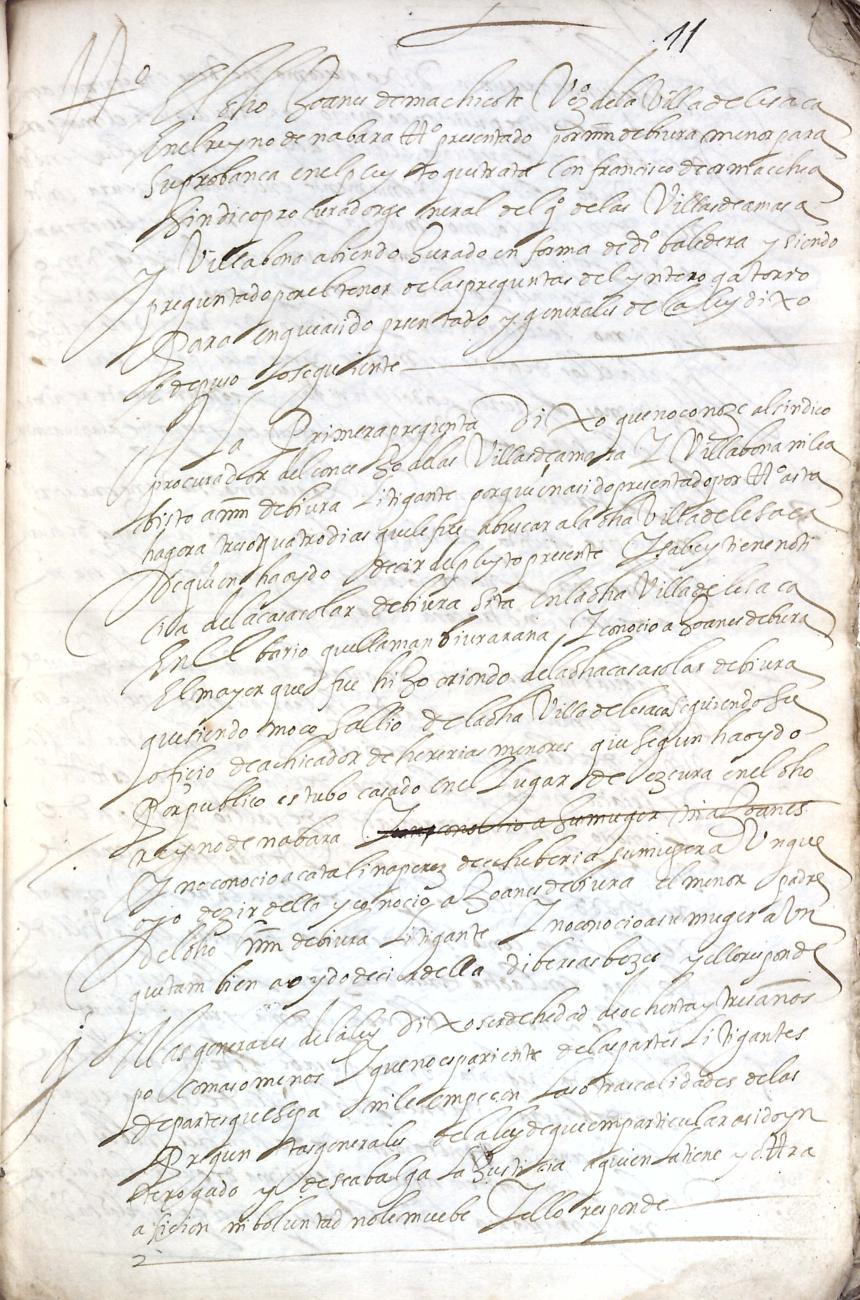 11
tº
El dho Joanes de machicote Vezº de la Villa de lesaca
En el rreyno de nabara tº presentado por mīn de biura menor para
Su probanca en el pley to que trata Con francisco de armacchea
Sindico procurador ge neral del qº de las Villas de amasa
Y Villabona abiendo Jurado en forma de dº baledera y siendo
preguntado por el tenor de las preguntas del ynterogatorio
Para en que a sido presentado y generales de la ley dixo
E depuso lo seguiente
1 A la Primera pregunta Dixo que no conoze al sindico
procurador del conce Jo de las Villas de amasa Y Villabona ni le a
bisto a mīn de biura Litigante por quien a sido presentado por tº asta
hagora tres o quatro dias que le fue abuscar a la dha Villa de lesaca
De quien ha oydo decir del pleyto presente Y sabe y tiene noti
cia de la casa solar de biura sita En la dha Villa de lesaca
En El bario que llaman biurarana, Y conocio a Joanes de biura
El mayor que fue hijo oriondo de la dha casa solar de biura
que siendo moco Sallio de la dha Villa de lesaca seguiendo su
oficio de achicador de hererias menores que segun ha oydo
Por publico estubo casado en el Lugar de ezcura en el dho
reyno de nabara
Y no conocio a catalina perez de echeberia su muger a Vnque
oyo dezir della y conocio a Joanes de biura el menor padre
del dho mīn de biura Litigante Y no conocio a su muger a Vn
que tam bien a oydo decir della dibersas bezes y ello responde
g A las generales de la ley Dixo ser de hedad de ochenta y tres años
po comas o menos Y que no es pariente de las partes Litigantes
de partes que sepa ni le empecen las otras calidades de las
Pregun tas generales de la ley de que em particular a sido yn
terogado y desea balga La Justicia a quien la tiene y otra
aficion ni boluntad no le muebe Y ello responde
2